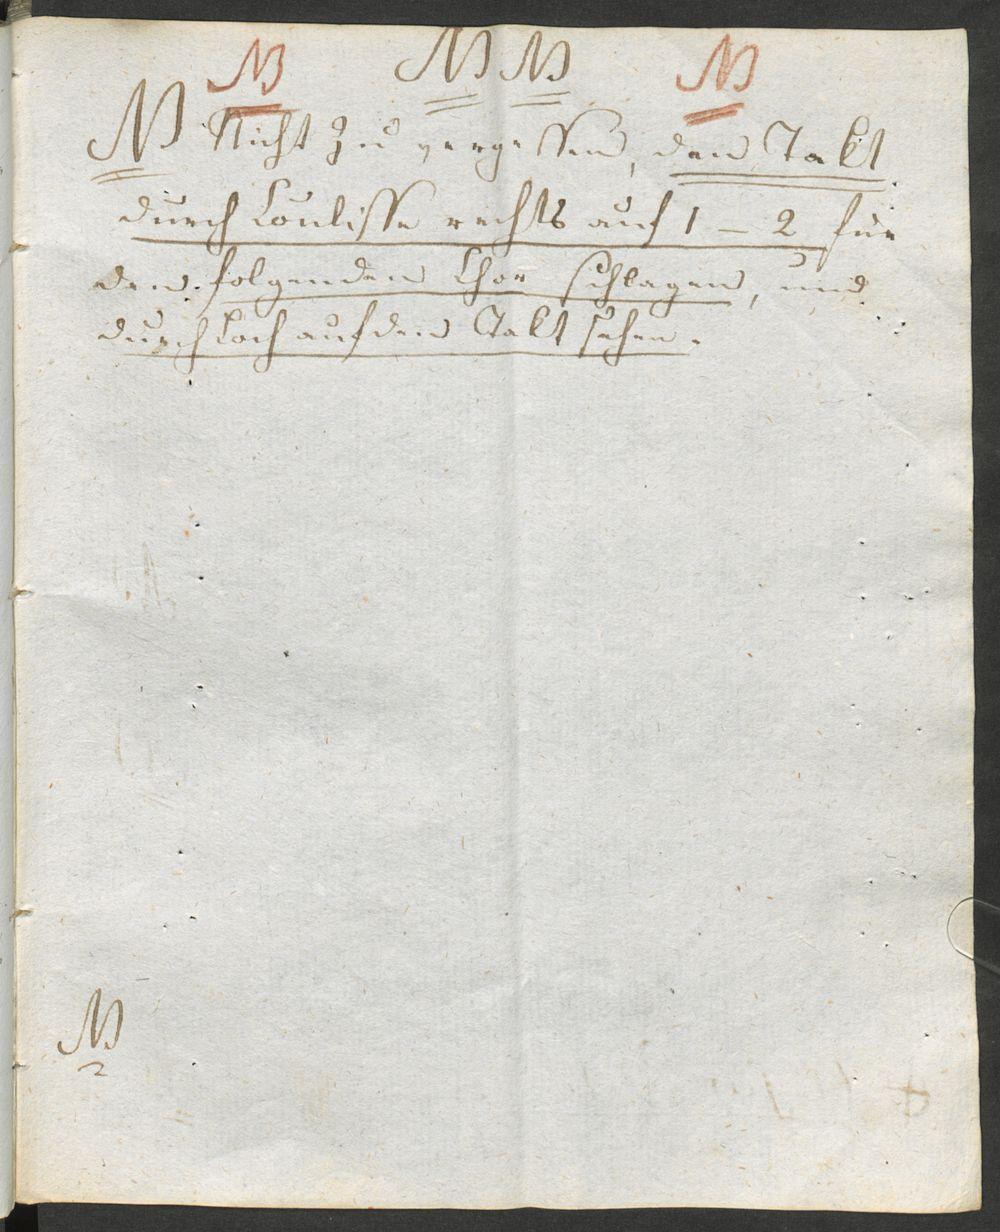 NB NB NB NB
NB Nicht zu vergessen, den Takt
durch Coulisse rechts auf 1 – 2 für
den folgenden Chor schlagen, und
durch Loch auf den Takt sehen.
NB